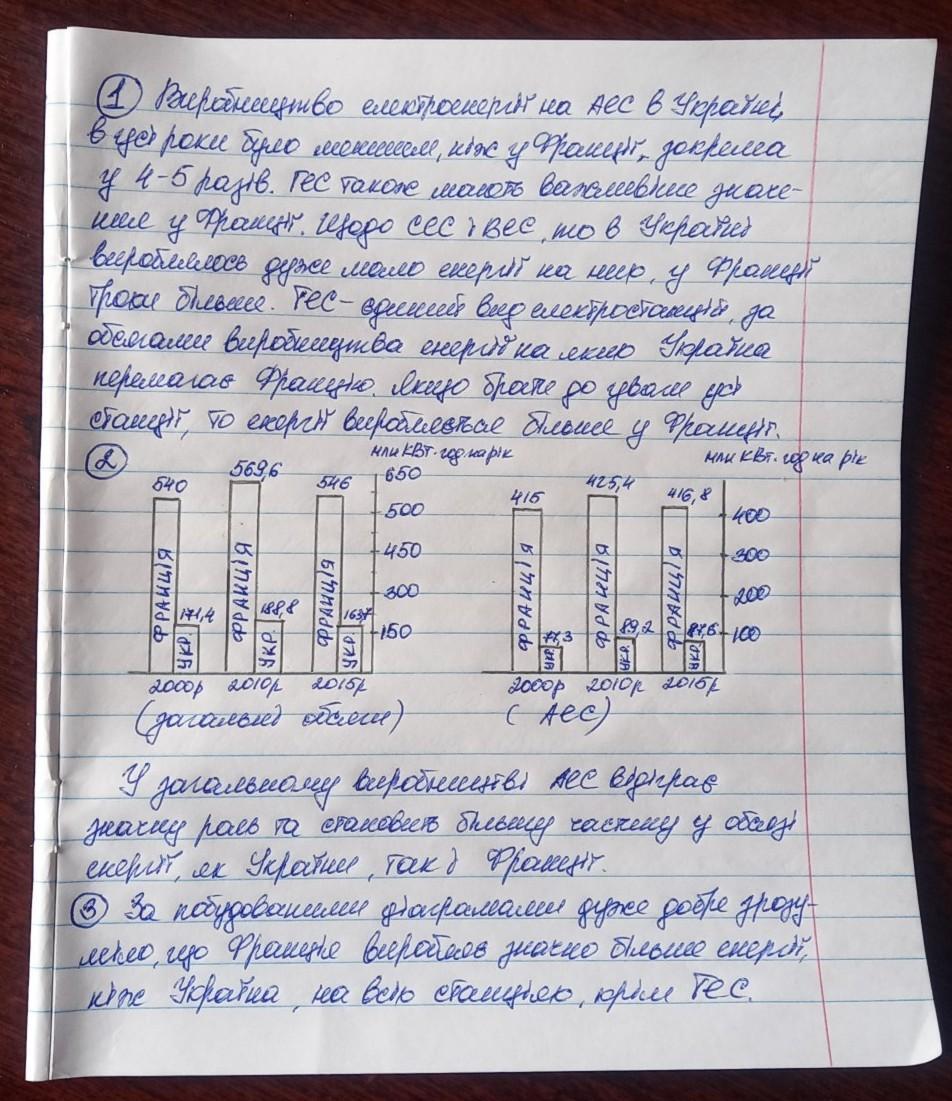 1 Виробництво електроенергії на АЕС в Україні,
в усі роки було меншим, ніж у Франції, зокрема
у 4-5 разів. ГЕС також мають важливіше значе-
ння у Франції. Щодо СЕС і ВЕС, то в Україні
вироблялось дуже мало енергії на них, у Франції
трохи більше. ТЕС - єдиний вид електростанцій, за
обсягами виробництва енергії на яких Україна
перемагає Францію. Якщо брати до уваги усі
станції, то енергії виробляється більше у Франції.
2
млн кВт·год на рік
540 569,6 546
650
500
450
300
150
ФРАНЦІЯ ФРАНЦІЯ ФРАНЦІЯ
171,4 188,8 163,7
УКР. УКР. УКР.
2000р 2010р 2015р
(загальні обсяги)
млн кВт·год на рік
415 425,4 416,8
400
300
200
100
ФРАНЦІЯ ФРАНЦІЯ ФРАНЦІЯ
77,3 89,2 87,6
УКР. УКР. УКР.
2000р 2010р 2015р
(АЕС)
У загальному виробництві АЕС відіграє
значну роль та становить більшу частину у обсязі
енергії, як України, так і Франції.
3 За побудованими діаграмами дуже добре зрозу-
міло, що Франція виробляє значно більше енергії,
ніж Україна, на всіх станціях, крім ТЕС.